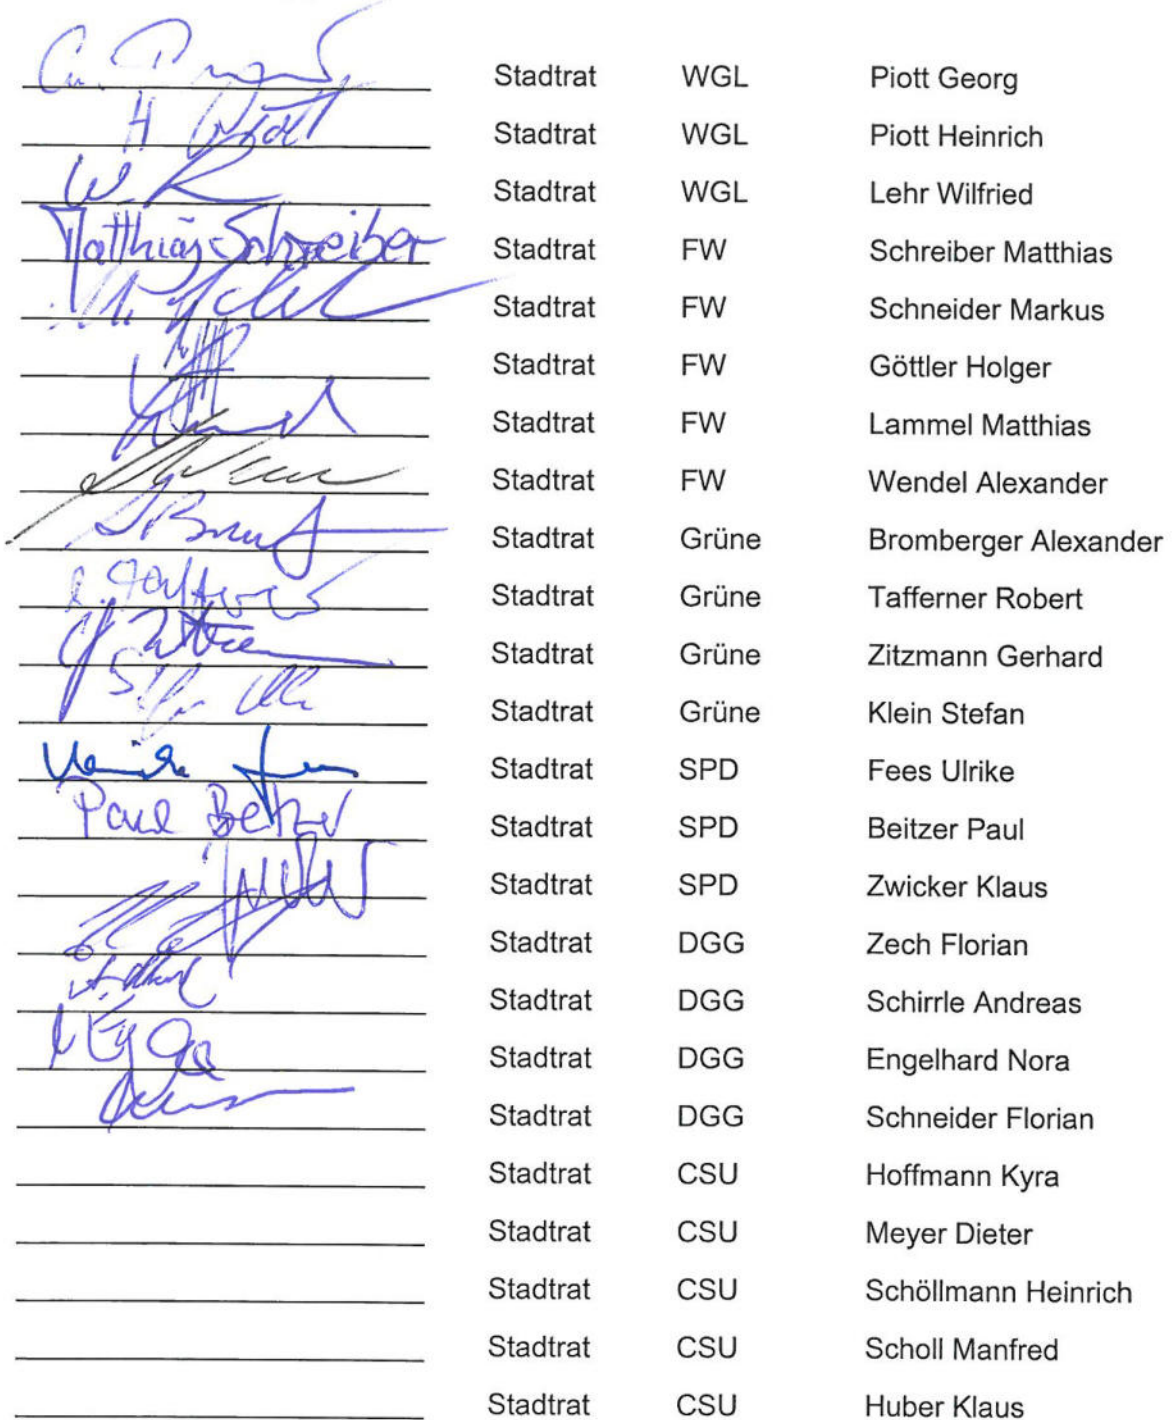 Stadtrat WGL Piott Georg
H Piott Stadtrat WGL Piott Heinrich
Stadtrat WGL Lehr Wilfried
Matthias Schreiber Stadtrat FW Schreiber Matthias
Stadtrat FW Schneider Markus
Stadtrat FW Göttler Holger
Stadtrat FW Lammel Matthias
Stadtrat FW Wendel Alexander
Stadtrat Grüne Bromberger Alexander
Stadtrat Grüne Tafferner Robert
Stadtrat Grüne Zitzmann Gerhard
Stadtrat Grüne Klein Stefan
Stadtrat SPD Fees Ulrike
Paul Beitzer Stadtrat SPD Beitzer Paul
Stadtrat SPD Zwicker Klaus
Stadtrat DGG Zech Florian
Stadtrat DGG Schirrle Andreas
Stadtrat DGG Engelhard Nora
Stadtrat DGG Schneider Florian
Stadtrat CSU Hoffmann Kyra
Stadtrat CSU Meyer Dieter
Stadtrat CSU Schöllmann Heinrich
Stadtrat CSU Scholl Manfred
Stadtrat CSU Huber Klaus